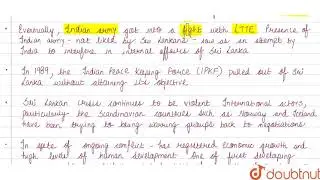 Eventually, Indian army got into a fight with LTTE. Presence of
Indian army - not liked by Sri Lankans - saw as an attempt by
India to interfere in internal affairs of Sri Lanka
In 1989, the Indian Peace Keeping Force (IPKF) pulled out of Sri
Lanka without attaining its objective
Sri Lankan crisis continues to be violent International actors,
particularly the Scandinavian countries such as Norway and Iceland
have been trying to bring warring groups back to negotiations
In spite of ongoing conflict - has registered economic growth and
high levels of human development. One of first developing
doubtnut